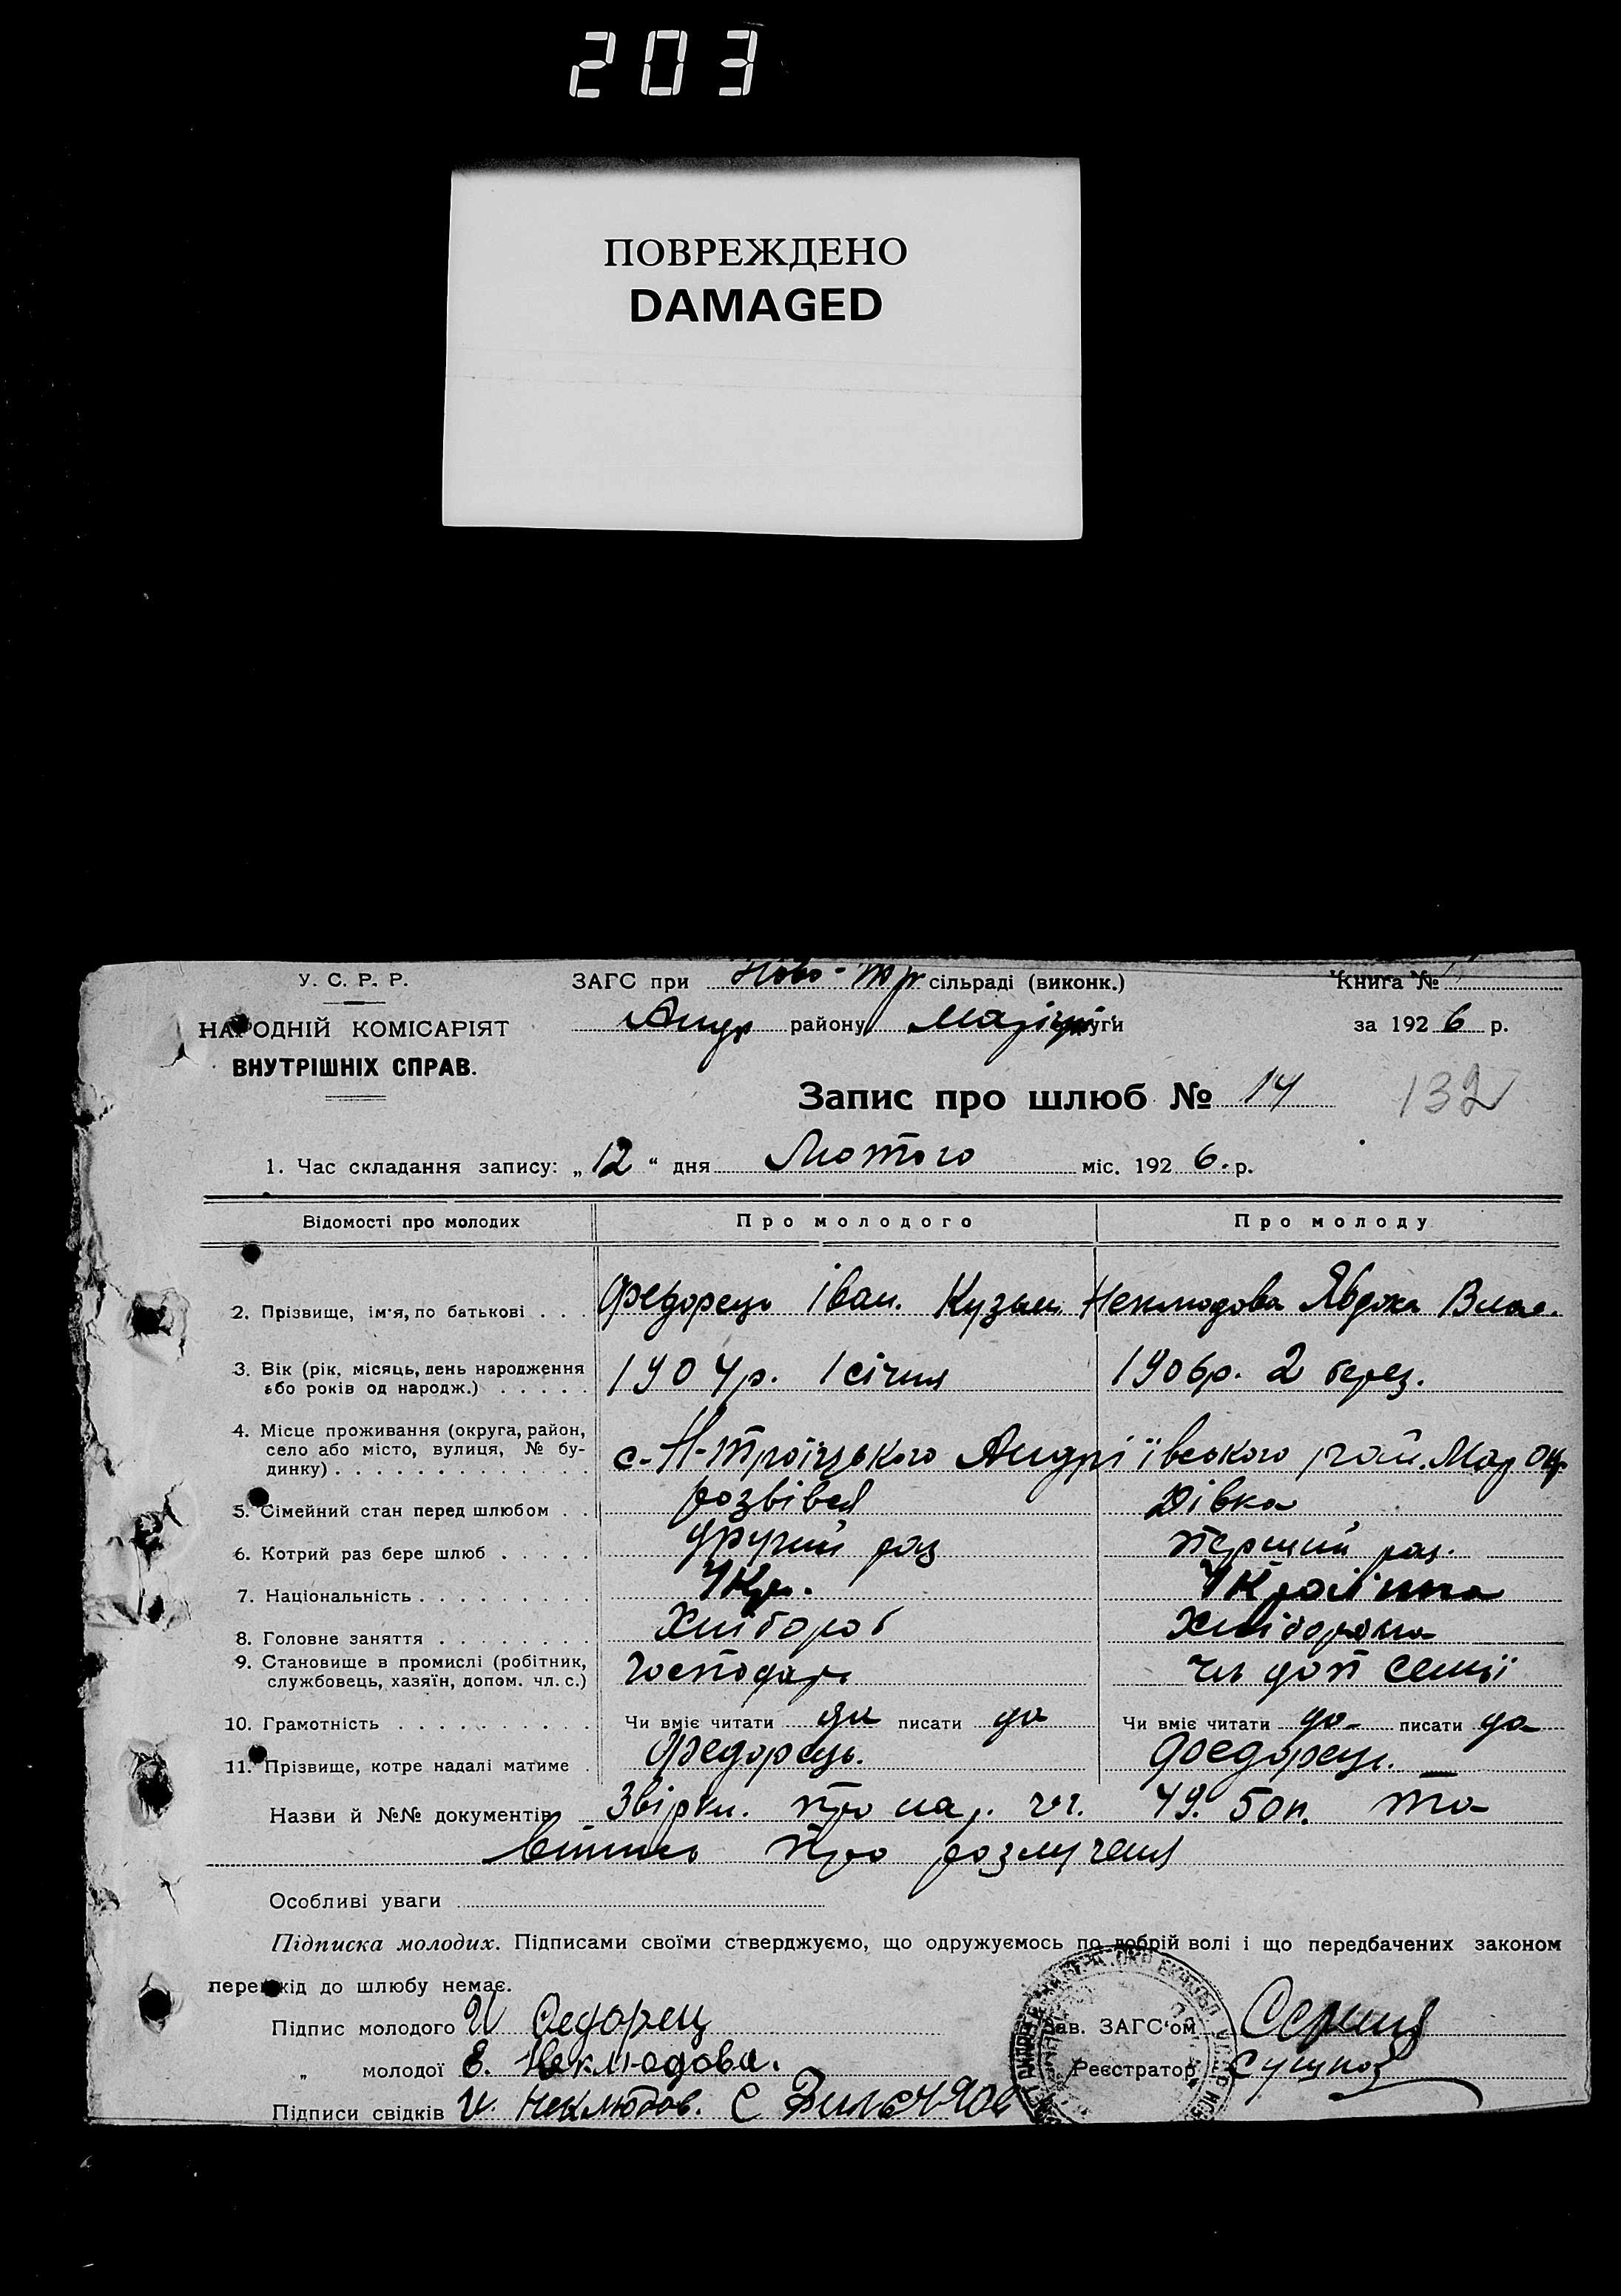 203
ПОВРЕЖДЕНО
DAMAGED
У. С. Р. Р.
НАРОДНІЙ КОМІСАРІЯТ
ВНУТРІШНІХ СПРАВ.
ЗАГС при Ново-Тр сільраді (виконк.)
Андр району Маріуп. округи
Книга №
за 1926 р.
Запис про шлюб № 14
132
1. Час складання запису: „12“ дня Лютого міс. 1926. р.
Відомості про молодих Про молодого Про молоду
2. Прізвище, ім'я, по батькові . . . Федорець Іван. Кузьм. Неклюдова Явдоха Влас.
3. Вік (рік, місяць, день народження або років од народж.) . . . . . 1904р. 1 січня 1906р. 2 берез.
4. Місце проживання (округа, район, село або місто, вулиця, № будинку) . . . . . . . . . . . . . с. Н-Троїцького Андріївського рай. Мар Окр.
5. Сімейний стан перед шлюбом . . розвівся Дівка
6. Котрий раз бере шлюб . . . . . другий раз перший раз.
7. Національність . . . . . . . . . Укр. Українка
8. Головне заняття . . . . . . . . Хлібороб Хліборобка
9. Становище в промислі (робітник, службовець, хазяїн, допом. чл. с.) Господарь чл доп семьї
10. Грамотність . . . . . . . . . . Чи вміє читати да писати да Чи вміє читати да писати да
11. Прізвище, котре надалі матиме . Федорець. Федорець.
Назви й №№ документів про нар. 49. 50п. та
випись про розлучення
Особливі уваги
Підписка молодих. Підписами своїми стверджуємо, що одружуємось по добрій волі і що передбачених законом
перешкід до шлюбу немає.
Підпис молодого И Федорец
„ молодої Е. Неклюдова.
Підписи свідків И. Неклюдов. С
Зав. ЗАГС'ом
Реєстратор